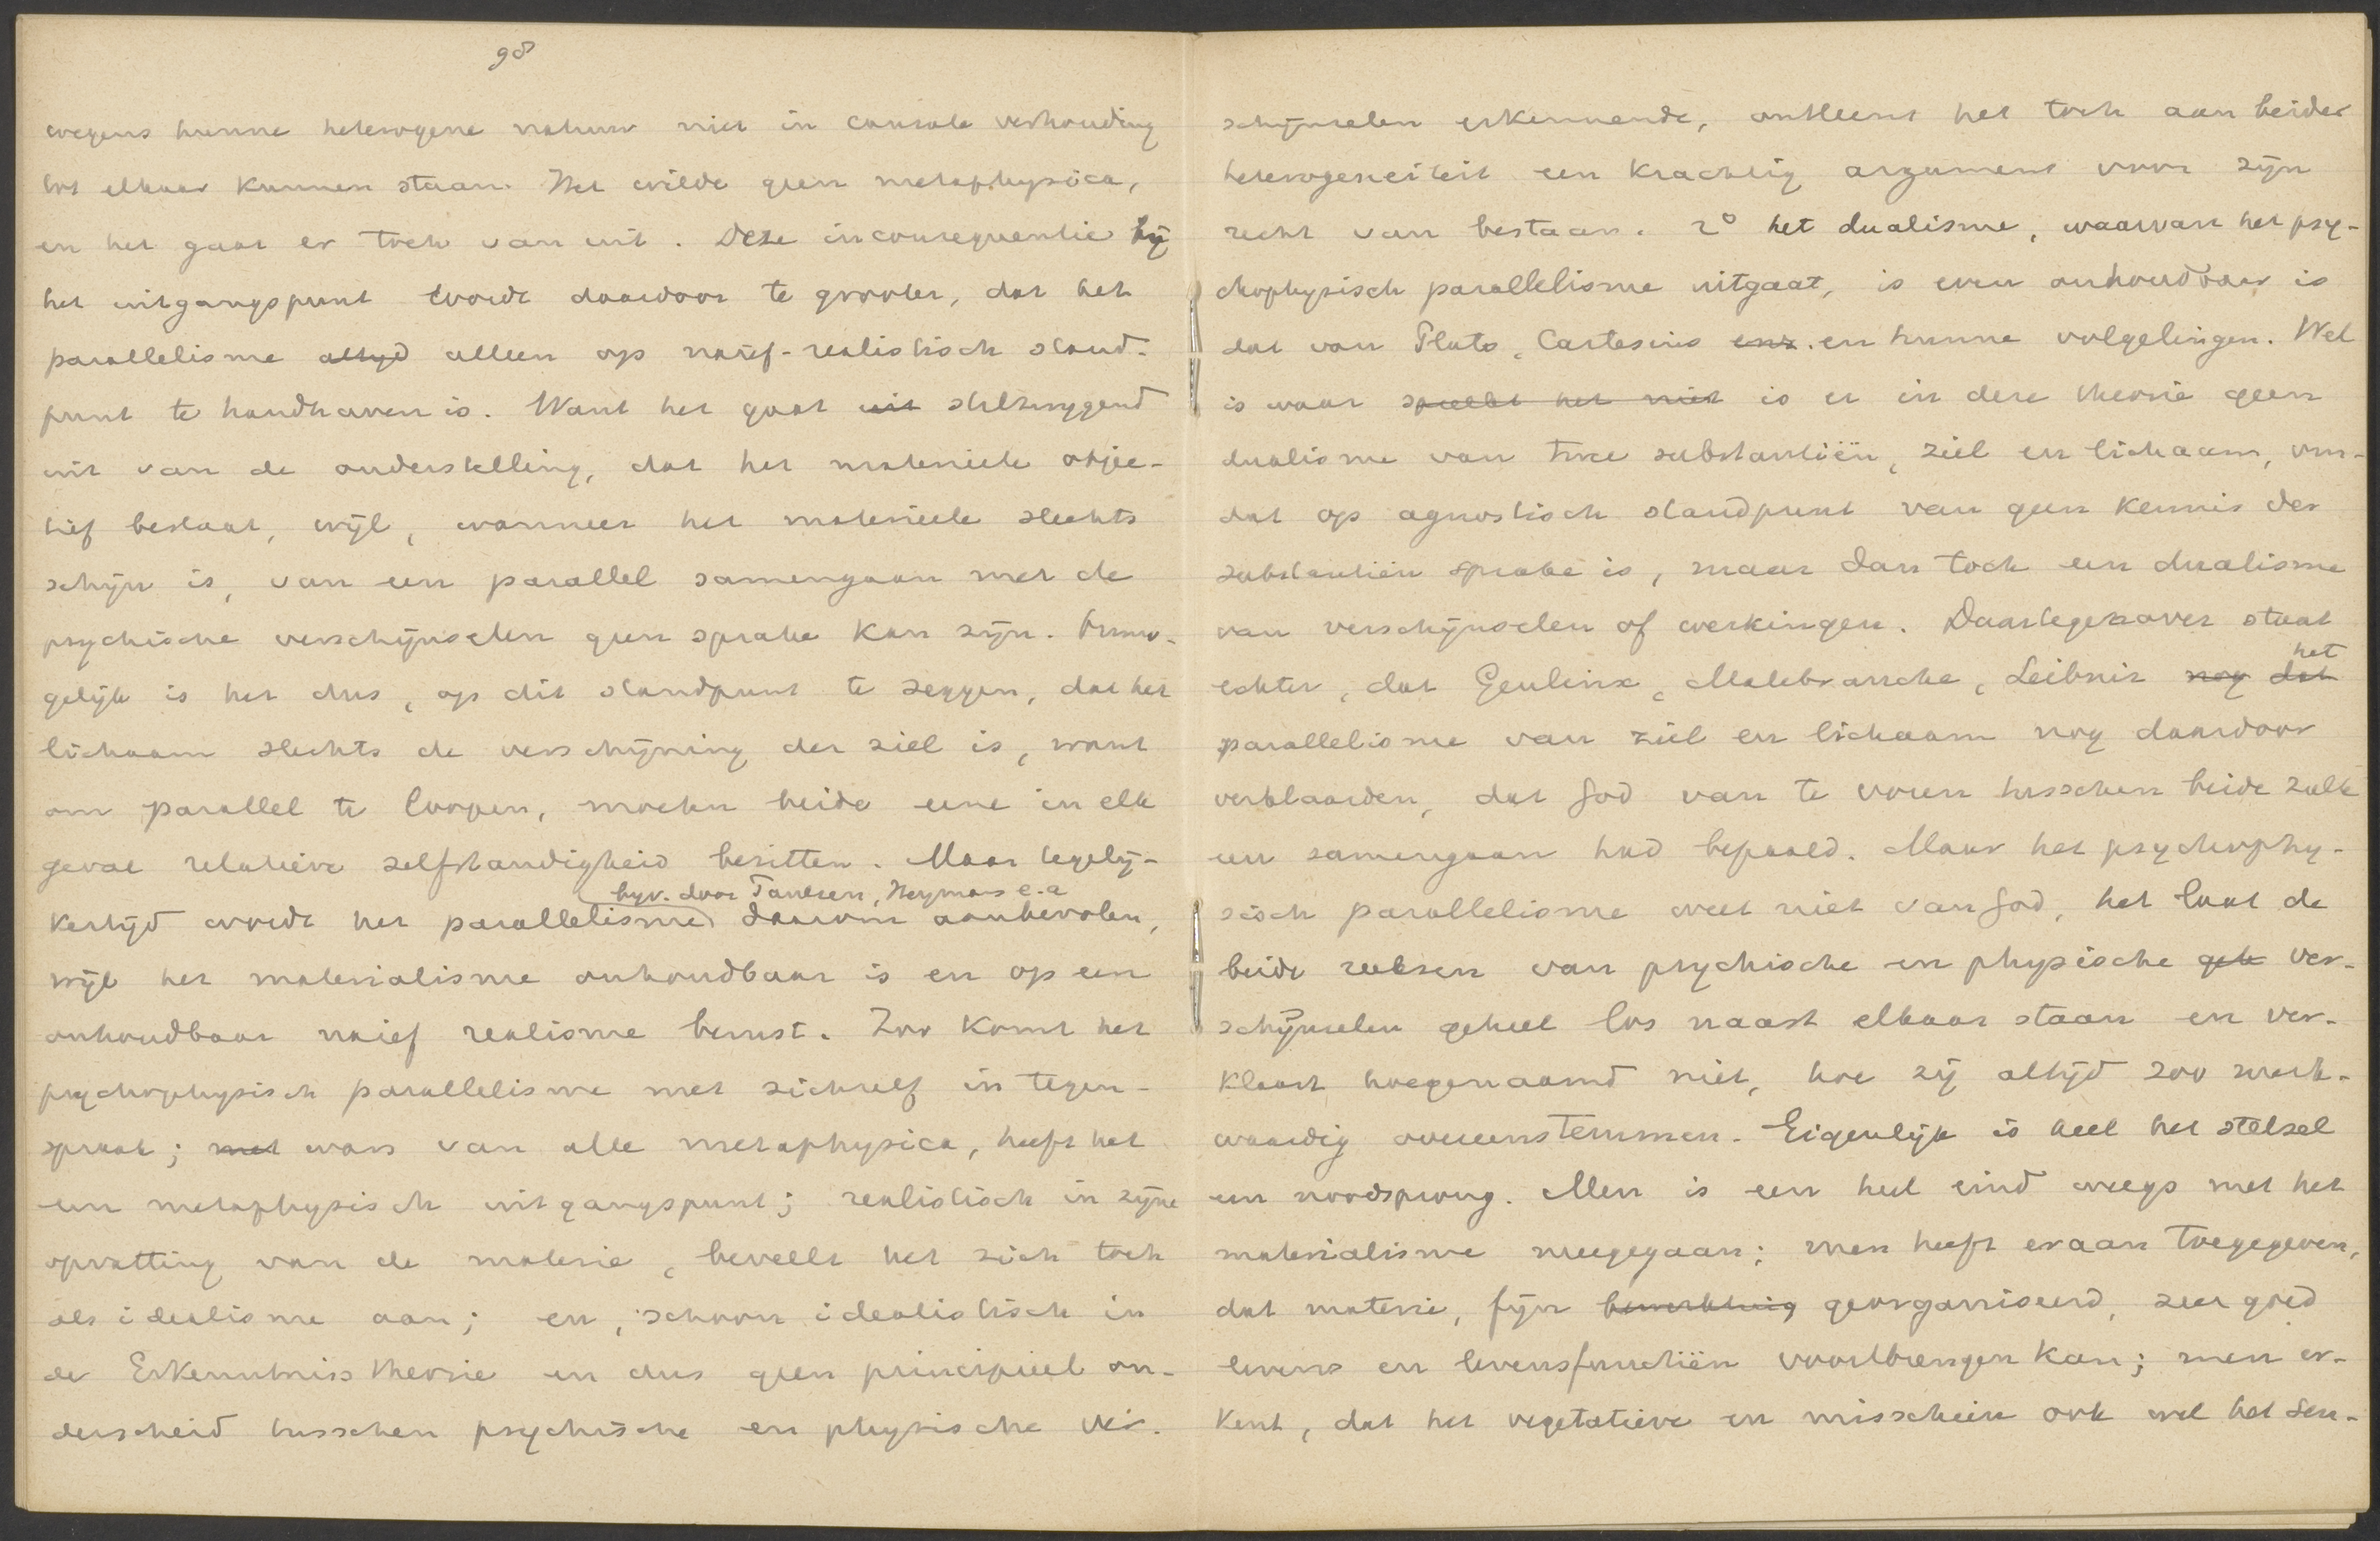 98
wegens hunne heterogene natuur niet in causale verhouding
tot elkaar kunnen staan. Het wilde geen metaphysica,
en het gaat er toch van uit. Deze inconsequentie bij
het uitgangspunt wordt daardoor te grooter, dat het
parallelisme altijd alleen op naïef-realistisch stand-
punt te handhaven is. Want het gaat uit stilzwijgend
uit van de onderstelling, dat het materieele objec-
tief bestaat, wijl, wanneer het materieele slechts
schijn is, van een parallel samengaan met de
psychische verschijnselen geen sprake kan zijn. Onmo-
gelijk is het dus, op dit standpunt te zeggen, dat het
lichaam slechts de verschijning der ziel is, want
om parallel te loopen, moeten beide eene in elk
geval relatieve zelfstandigheid bezitten. Maar tegelij-
bijv. door Paulsen, Heymans e.a
kertijd wordt het parallelisme daarom aanbevolen,
wijl het materialisme onhoudbaar is en op een
onhoudbaar naief realisme berust. Zoo komt het
psychophysisch parallelisme met zichzelf in tegen-
spraak; met wars van alle metaphysica, heeft het
een metaphysisch uitgangspunt; realistisch in zijne
opvatting van de materie, beveelt het zich toch
als idealisme aan; en, schoon idealistisch in
de Erkenntniss theorie en dus geen principieel on-
derscheid tusschen psychische en physische ver-
schijnselen erkennende, ontleent het toch aan beider
heterogeneiteit een krachtig argument voor zijn
recht van bestaan. 2° het dualisme, waarvan het psy-
chophysisch parallelisme uitgaat, is even onhoudbaar is
dat van Plato, Cartesius enz. en hunne volgelingen. Wel
is waar spreekt het niet is er in deze theorie geen
dualisme van twee substantiën, ziel en lichaam, om-
dat op agnostisch standpunt van geen kennis der
substantiën sprake is, maar dan toch een dualisme
van verschijnselen of werkingen. Daartegenover staat
het
echter, dat Geulinx, Malebranche, Leibniz nog dat
parallelisme van ziel en lichaam nog daardoor
verklaarden, dat God van te voren tusschen beide zulk
een samengaan had bepaald. Maar het psychophy-
sisch parallelisme weet niet van God, het laat de
beide reeksen van psychische en physische gele ver-
schijnselen geheel los naast elkaar staan en ver-
klaart hoegenaamd niet, hoe zij altijd zoo merk-
waardig overeenstemmen. Eigenlijk is heel het stelsel
een noodsprong. Men is een heel eind weegs met het
materialisme meegegaan; men heeft eraan toegegeven,
dat materie, fijn bewerktuig georganiseerd, zeer goed
levens en levensfunctiën voortbrengen kan; men er-
kent, dat het vegetatieve en misschien ook wel het sen-